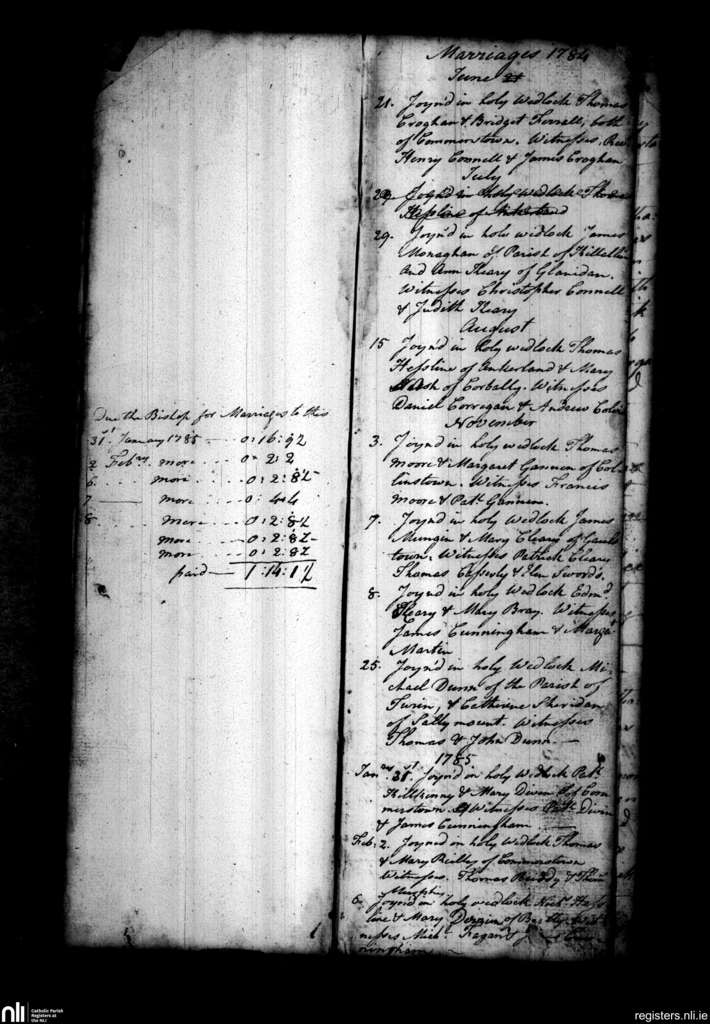 Due the Bishop for Marriages to this
31st January 1785 — 0:16:9½
2 Febry. more ... 0:2:2
6. more ... 0:2:8½
7 — more ... 0:4:4
8 more ... 0:2:8½
more ... 0:2:8½
more ... 0:2:8½
paid — 1:14:1½
Marriages 1784
June
21. Joyn'd in holy Wedlock Thomas
Croghan & Bridget Ferrell, both
of Commerstown. Witnesses
Henry Connell & James Croghan
July
Joyn'd in Holy Wedlock Thomas
Hessline of
29. Joyn'd in holy wedlock James
Monaghan of Parish of Killallin
and Ann Keary of Glanidan.
Witnesses Christopher Connell
& Judith Keary
August
15 Joyn'd in holy wedlock Thomas
Hessline of Ankerland & Mary
of Corbally. Witnesses
Daniel Corregan & Andrew
November
3. Joyn'd in holy wedlock Thomas
Moore & Margaret Gannon of Col
linstown. Witnesses Francis
Moore & Patt. Gannon.
7. Joyn'd in holy Wedlock James
Mungin & Mary Cleary of
town. Witnesses Patrick Cleary
Thomas & Elen Swords.
8. Joyn'd in holy Wedlock Edmd.
Keary & Mary Bray. Witnesses
James Cunningham & Margt.
Martin
25. Joyn'd in holy Wedlock Mi-
chael Dunn of the Parish of
Turin, & Catherine Sheridan
of Sallymount. Witnesses
Thomas & John Dunn. —
1785
Janry. 31st. Joyn'd in holy Wedlock Patt.
Killkenny & Mary Divin of Com
merstown. Witnesses Patt. Divin
& James Cunningham
Feb: 2. Joyned in holy Wedlock Thomas
& Mary Reilly of Commerstown
Witnesses. Thomas Ruddy & Thos.
Murphy
6. Joyn'd in holy wedlock Hess
line & Mary of Wit
nesses Michl. Fagan &
ningham
nli
Catholic Parish
Registers at
the NLI
registers.nli.ie